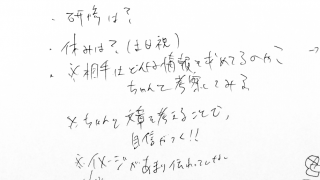 ・研修は?
・休みは?(土日祝)
・※相手はどんな情報を求めてるのかを
ちゃんと考察してみる
※ちゃんと文章を考えることで、
自信がつく!!
※イメージがあまり伝わっていない